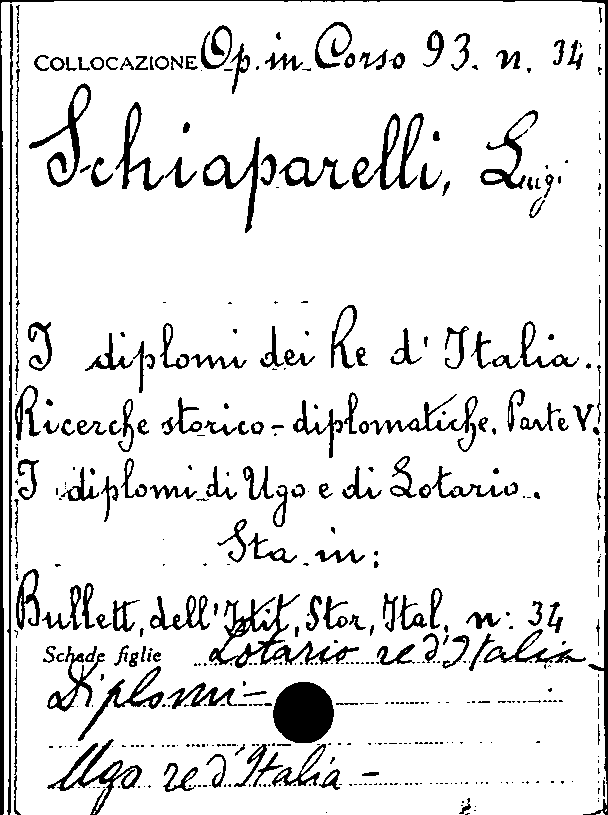 COLLOCAZIONE Op. in Corso 93. n. 34
Schiaparelli, Luigi
I diplomi dei Re d'Italia.
Ricerche storico-diplomatiche. Parte V.
I diplomi di Ugo e di Lotario.
Sta in:
Bullett. dell'Istit. Stor. Ital. n: 34
Schede figlie Lotario re d'Italia -
Diplomi -
Ugo re d'Italia -